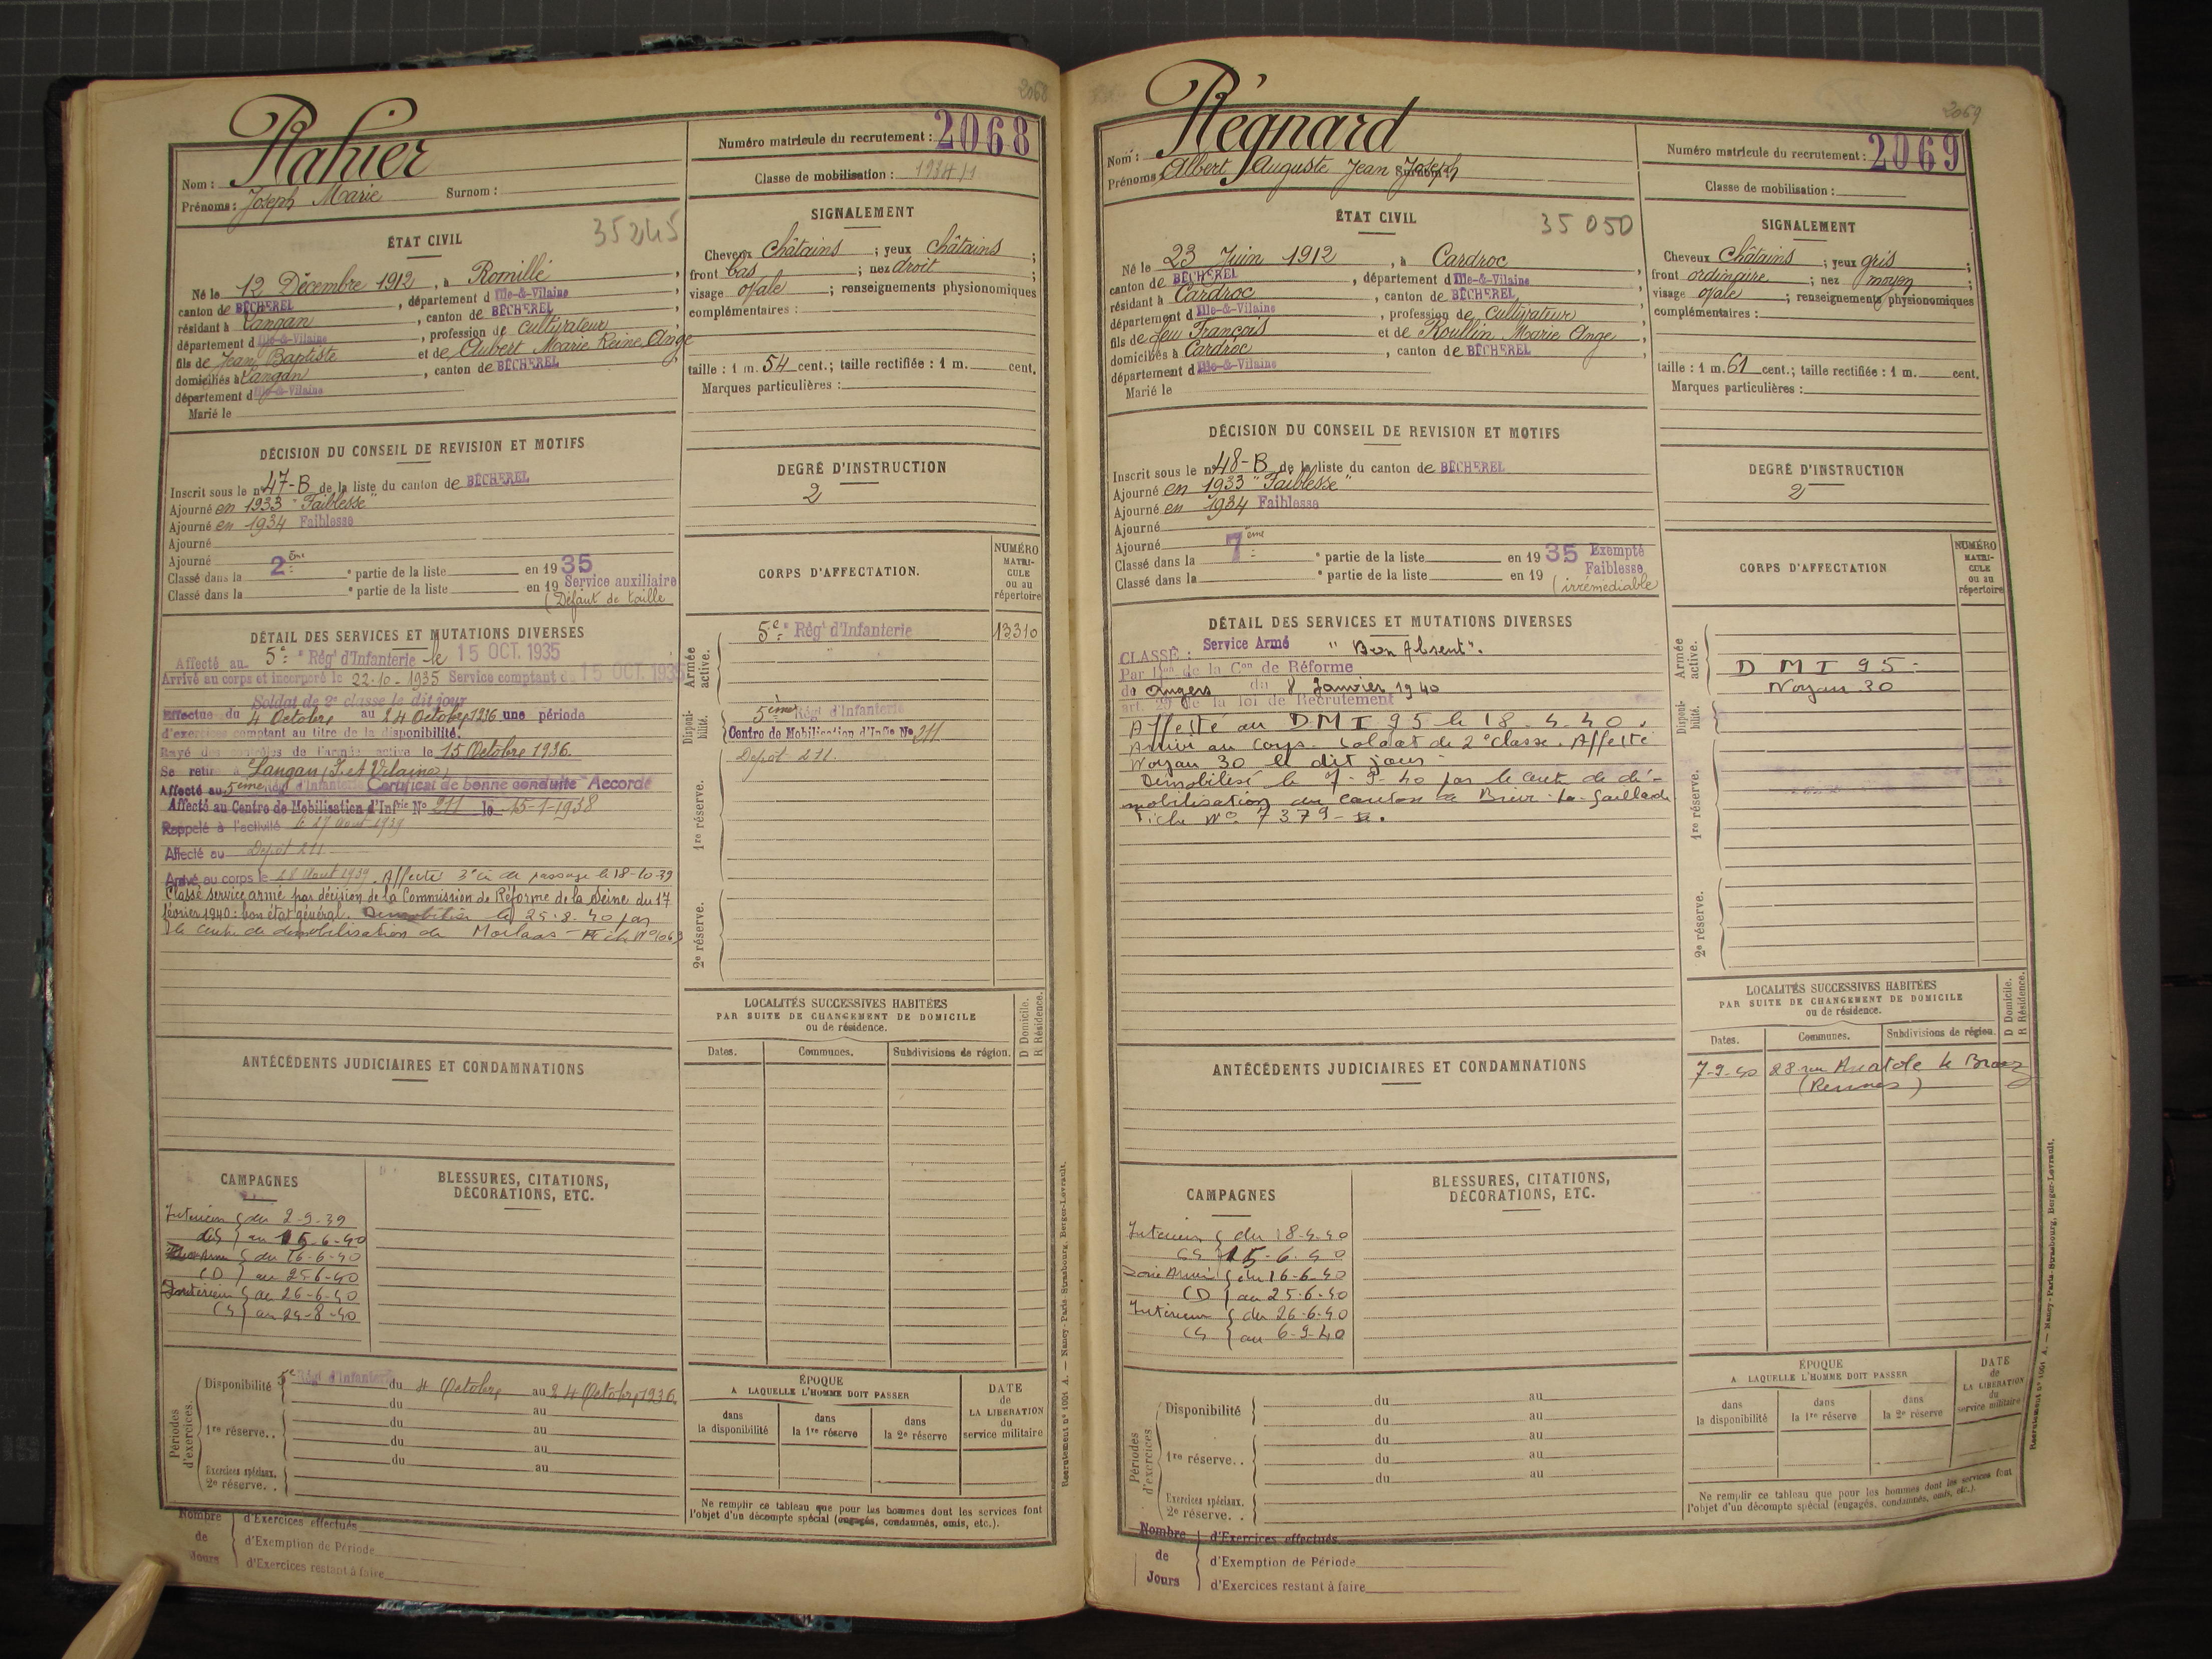 2068
Rahier
Nom :
Prénoms : Joseph Marie Surnom :
Numéro matricule du recrutement : 2068
Classe de mobilisation : 1934/1
ÉTAT CIVIL
35245
Né le 12 Décembre 1912, à Romillé,
canton de BÉCHEREL, département d Ille-&-Vilaine,
résidant à Langan, canton de BÉCHEREL,
département d Ille-&-Vilaine, profession de Cultivateur
fils de Jean Baptiste et de Aubert Marie Reine Ange
domiciliés à Langan, canton de BÉCHEREL
département d Ille-&-Vilaine
Marié le
SIGNALEMENT
Cheveux Châtains ; yeux Châtains ;
front bas ; nez droit ;
visage ovale ; renseignements physionomiques
complémentaires :
taille : 1 m. 54 cent.; taille rectifiée : 1 m. cent.
Marques particulières :
DÉCISION DU CONSEIL DE REVISION ET MOTIFS
Inscrit sous le n° 47-B de la liste du canton de BÉCHEREL
Ajourné en 1933 "Faiblesse"
Ajourné en 1934 Faiblesse
Ajourné
Ajourné
Classé dans la 2ème partie de la liste en 1935
Classé dans la ° partie de la liste en 19 Service auxiliaire
(Défaut de taille
DEGRÉ D'INSTRUCTION
2
CORPS D'AFFECTATION.
NUMÉRO MATRICULE ou au répertoire
Armée active.
5e Régt d'Infanterie 13310
Disponibilité.
5ème Régt d'Infanterie
Centre de Mobilisation d'Infie No 211
1re réserve.
Dépôt 211.
2e réserve.
DÉTAIL DES SERVICES ET MUTATIONS DIVERSES
Affecté au 5e Régt d'Infanterie le 15 OCT. 1935
Arrivé au corps et incorporé le 22-10-1935 Service comptant du 15 OCT. 1935
Soldat de 2e classe le dit jour
Effectue du 4 Octobre au 24 Octobre 1936 une période
d'exercices comptant au titre de la disponibilité.
Rayé des contrôles de l'armée active le 15 Octobre 1936.
Se retire à Langan (I. et Vilaine)
Affecté au 5ème Rég d'Infanterie Certificat de bonne conduite "Accordé
Affecté au Centre de Mobilisation d'Infrie No 211 le 15-1-1938
Rappelé à l'activité le 27 Aout 1939
Affecté au Dépôt 211
Arrivé au corps le 28 Aout 1939. Affecté 3e Cie de passage le 18-10-39
Classé service armé par décision de la Commission de Réforme de la Seine du 17
février 1940 : bon état général. Démobilisé le 25-8-40 par
le centre de démobilisation de Morlaas - Fiche No 1063
LOCALITÉS SUCCESSIVES HABITÉES
PAR SUITE DE CHANGEMENT DE DOMICILE
ou de résidence.
D Domicile.
R Résidence.
Dates. Communes. Subdivisions de région.
ANTÉCÉDENTS JUDICIAIRES ET CONDAMNATIONS
CAMPAGNES
BLESSURES, CITATIONS,
DÉCORATIONS, ETC.
Intérieur { du 2-9-39
CS } au 15-6-40
Zone Armée { du 16-6-40
(D } au 25-6-40
Intérieur { du 26-6-40
CS } au 24-8-40
Périodes d'exercices.
Disponibilité 5e Régt d'Infanterie du 4 Octobre au 24 Octobre 1936.
du au
1re réserve.. du au
du au
du au
Exercices spéciaux.
2e réserve. .
ÉPOQUE
A LAQUELLE L'HOMME DOIT PASSER
dans la disponibilité
dans la 1re réserve
dans la 2e réserve
DATE de LA LIBÉRATION du service militaire
Ne remplir ce tableau que pour les hommes dont les services font
l'objet d'un décompte spécial (engagés, condamnés, omis, etc.).
Nombre de Jours
d'Exercices effectués
d'Exemption de Période
d'Exercices restant à faire
Recrutement n° 1001 A. — Nancy-Paris-Strasbourg, Berger-Levrault.
2069
Régnard
Nom :
Prénoms : Albert Auguste Jean Joseph Surnom :
Numéro matricule du recrutement : 2069
Classe de mobilisation :
ÉTAT CIVIL
35050
Né le 23 Juin 1912, à Cardroc
canton de BÉCHEREL, département d Ille-&-Vilaine
résidant à Cardroc, canton de BÉCHEREL,
département d Ille-&-Vilaine, profession de Cultivateur
fils de feu François et de Roullin Marie Ange,
domiciliés à Cardroc, canton de BÉCHEREL
département d Ille-&-Vilaine
Marié le
SIGNALEMENT
Cheveux Châtains ; yeux gris ;
front ordinaire ; nez moyen ;
visage ovale ; renseignements physionomiques
complémentaires :
taille : 1 m. 61 cent.; taille rectifiée : 1 m. cent.
Marques particulières :
DÉCISION DU CONSEIL DE REVISION ET MOTIFS
Inscrit sous le n° 48-B de la liste du canton de BÉCHEREL
Ajourné en 1933 "Faiblesse"
Ajourné en 1934 Faiblesse
Ajourné
Ajourné
Classé dans la 7ème partie de la liste en 1935 Exempté
Classé dans la ° partie de la liste en 19 Faiblesse
(irrémédiable)
DEGRÉ D'INSTRUCTION
2
CORPS D'AFFECTATION
NUMÉRO MATRICULE ou au répertoire
Armée active.
D M I 95 -
Noyau 30
Disponibilité.
1re réserve.
2e réserve.
DÉTAIL DES SERVICES ET MUTATIONS DIVERSES
CLASSÉ : Service Armé "Bon Absent".
Par Don de la Con de Réforme
de Angers du 8 Janvier 1940
art. 29 de la loi de Recrutement
Affecté au D M I 95 le 18-4-40.
Arrivé au Corps. Soldat de 2e Classe. Affecté
Noyau 30 le dit jour -
Démobilisé le 7-9-40 par le centre de dé-
mobilisation du canton de Brive-la-Gaillarde
Fiche No 7379
LOCALITÉS SUCCESSIVES HABITÉES
PAR SUITE DE CHANGEMENT DE DOMICILE
ou de résidence.
D Domicile.
R Résidence.
Dates. Communes. Subdivisions de région.
7-9-40 28 rue Anatole le Braz
(Rennes)
ANTÉCÉDENTS JUDICIAIRES ET CONDAMNATIONS
CAMPAGNES
BLESSURES, CITATIONS,
DÉCORATIONS, ETC.
Intérieur { du 18-4-40
CS } 15-6-40
Zone Armée { du 16-6-40
(D } au 25-6-40
Intérieur { du 26-6-40
CS } au 6-9-40
Périodes d'exercices
Disponibilité du au
du au
1re réserve.. du au
du au
du au
Exercices spéciaux.
2e réserve. .
ÉPOQUE
A LAQUELLE L'HOMME DOIT PASSER
dans la disponibilité
dans la 1re réserve
dans la 2e réserve
DATE de LA LIBÉRATION du service militaire
Ne remplir ce tableau que pour les hommes dont les services font
l'objet d'un décompte spécial (engagés, condamnés, omis, etc.).
Nombre de Jours
d'Exercices effectués
d'Exemption de Période
d'Exercices restant à faire
Recrutement n° 1001 A. — Nancy-Paris-Strasbourg, Berger-Levrault.